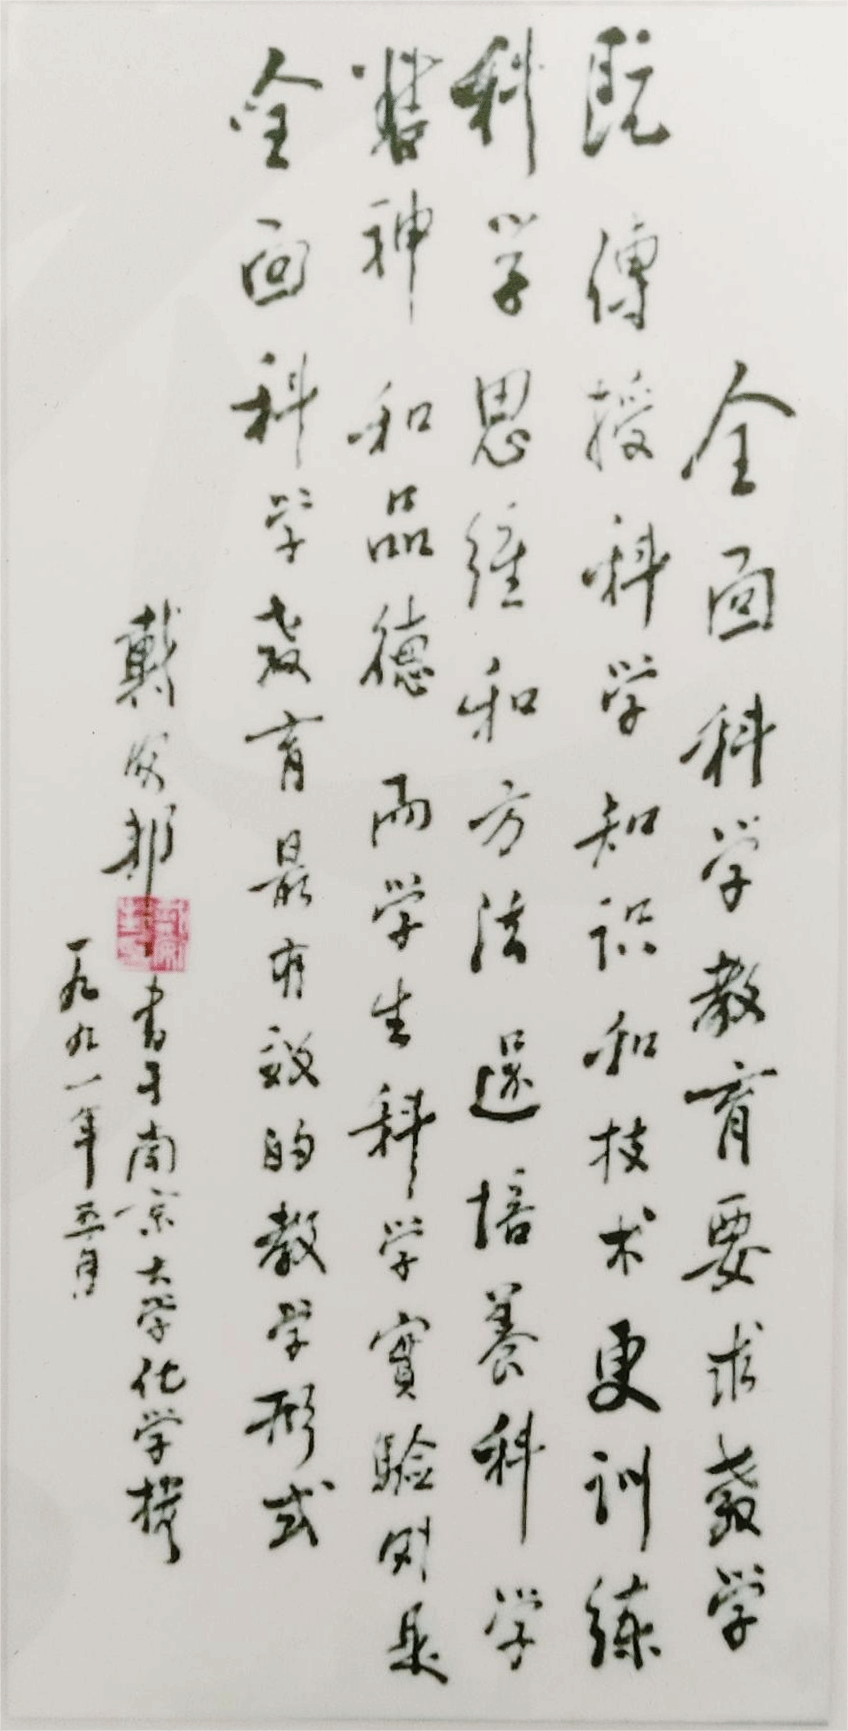 全面科学教育要求教学
既傳授科学知识和技术更训練
科学思维和方法还培養科学
精神和品德而学生科学實驗则是
全面科学教育最有效的教学形式
戴安邦
书于南京大学化学楼
一九九一年五月